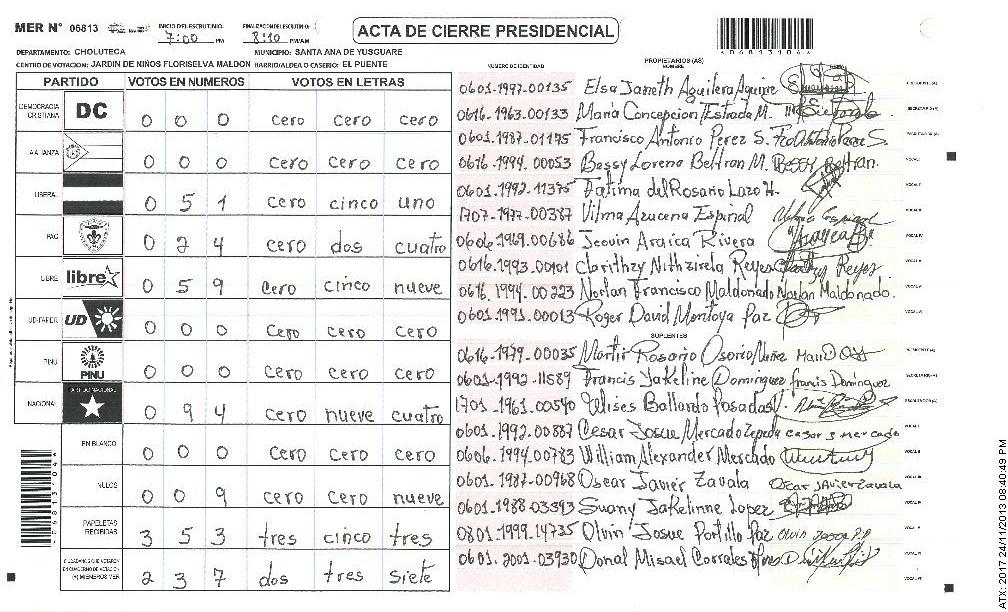 MER N° 06813
INICIO DEL ESCRUTINIO: 7:00 PM
FINALIZACION ESCRUTINIO: 8:10 PM/AM
ACTA DE CIERRE PRESIDENCIAL
*06813104*
DEPARTAMENTO: CHOLUTECA MUNICIPIO: SANTA ANA DE YUSGUARE
CENTRO DE VOTACION: JARDIN DE NIÑOS FLORISELVA MALDON BARRIO/ALDEA O CASERIO: EL PUENTE
PARTIDO VOTOS EN NUMEROS VOTOS EN LETRAS
DEMOCRACIA CRISTIANA DC 0 0 0 cero cero cero
ALIANZA 0 0 0 cero cero cero
LIBERAL 0 5 1 cero cinco uno
PAC 0 2 4 cero dos cuatro
LIBRE libre 0 5 9 cero cinco nueve
UD-FAPER UD 0 0 0 cero cero cero
PINU PINU 0 0 0 cero cero cero
NACIONAL 0 9 4 cero nueve cuatro
EN BLANCO 0 0 0 cero cero cero
NULOS 0 0 9 cero cero nueve
PAPELETAS RECIBIDAS 3 5 3 tres cinco tres
CIUDADANOS QUE VOTARON EN CUADERNO DE VOTACION (+) MIEMBROS MER 2 3 7 dos tres siete
NUMERO DE IDENTIDAD PROPIETARIOS (AS) NOMBRE FIRMA
0601-1997-00135 Elsa Janneth Aguilera Aguirre PRESIDENTE (A)
0616-1963-00133 Maria Concepcion Estrada M. SECRETARIO (A)
0601-1987-01175 Francisco Antonio Perez S. ESCRUTADOR (A)
0616-1994-00053 Bessy Lorena Beltran M. Bessy Beltran. VOCAL I
0601-1992-11375 Fatima del Rosario Lazo H. VOCAL II
1707-1977-00387 Vilma Azucena Espinal VOCAL III
0606-1969-00686 Jeovin Araica Rivera VOCAL IV
0616-1993-00101 Clarithzy Nithzirela Reyes Reyes VOCAL V
0616-1994-00223 Noslan Francisco Maldonado Noslan Maldonado. VOCAL VI
0601-1991-00013 Roger David Montoya Paz
SUPLENTES
0616-1979-00035 Martir Rosario Osorio Nuñez PRESIDENTE (A)
0601-1992-11589 Francis Yakeline Dominguez Francis Dominguez SECRETARIO (A)
1701-1961-00540 Ulises Ballardo Posadas ESCRUTADOR (A)
0601-1992-00887 Cesar Josue Mercado Zepeda Cesar J Mercado VOCAL I
0606-1994-00783 William Alexander Mercado VOCAL II
0601-1987-00968 Oscar Javier Zavala Oscar Javier Zavala VOCAL III
0601-1988-03393 Suany Jakelinne Lopez VOCAL IV
0801-1999-14735 Olvin Josue Portillo Paz Olvin Josue P.P VOCAL V
0601-2001-03930 Donal Misael Corrales Flores VOCAL VI
*06813104*
ATX: 2017 24/11/2013 08:40:49 PM